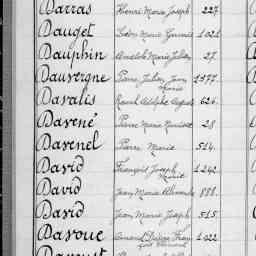 Darras Henri Marie Joseph 227.
Dauget Léon Marie 1021
Dauphin Anatole Marie Julien 27.
Dauvergne Pierre Julien Jean Marie 1977.
Davalis Raoul Adolphe Auguste 626.
Davené Pierre Marie 28
Davenel Pierre Marie 514.
David François Joseph 1242.
David Jean Marie Alexandre 888.
David Jean Marie Joseph 515.
Davoue Amand Désiré Fran 1022